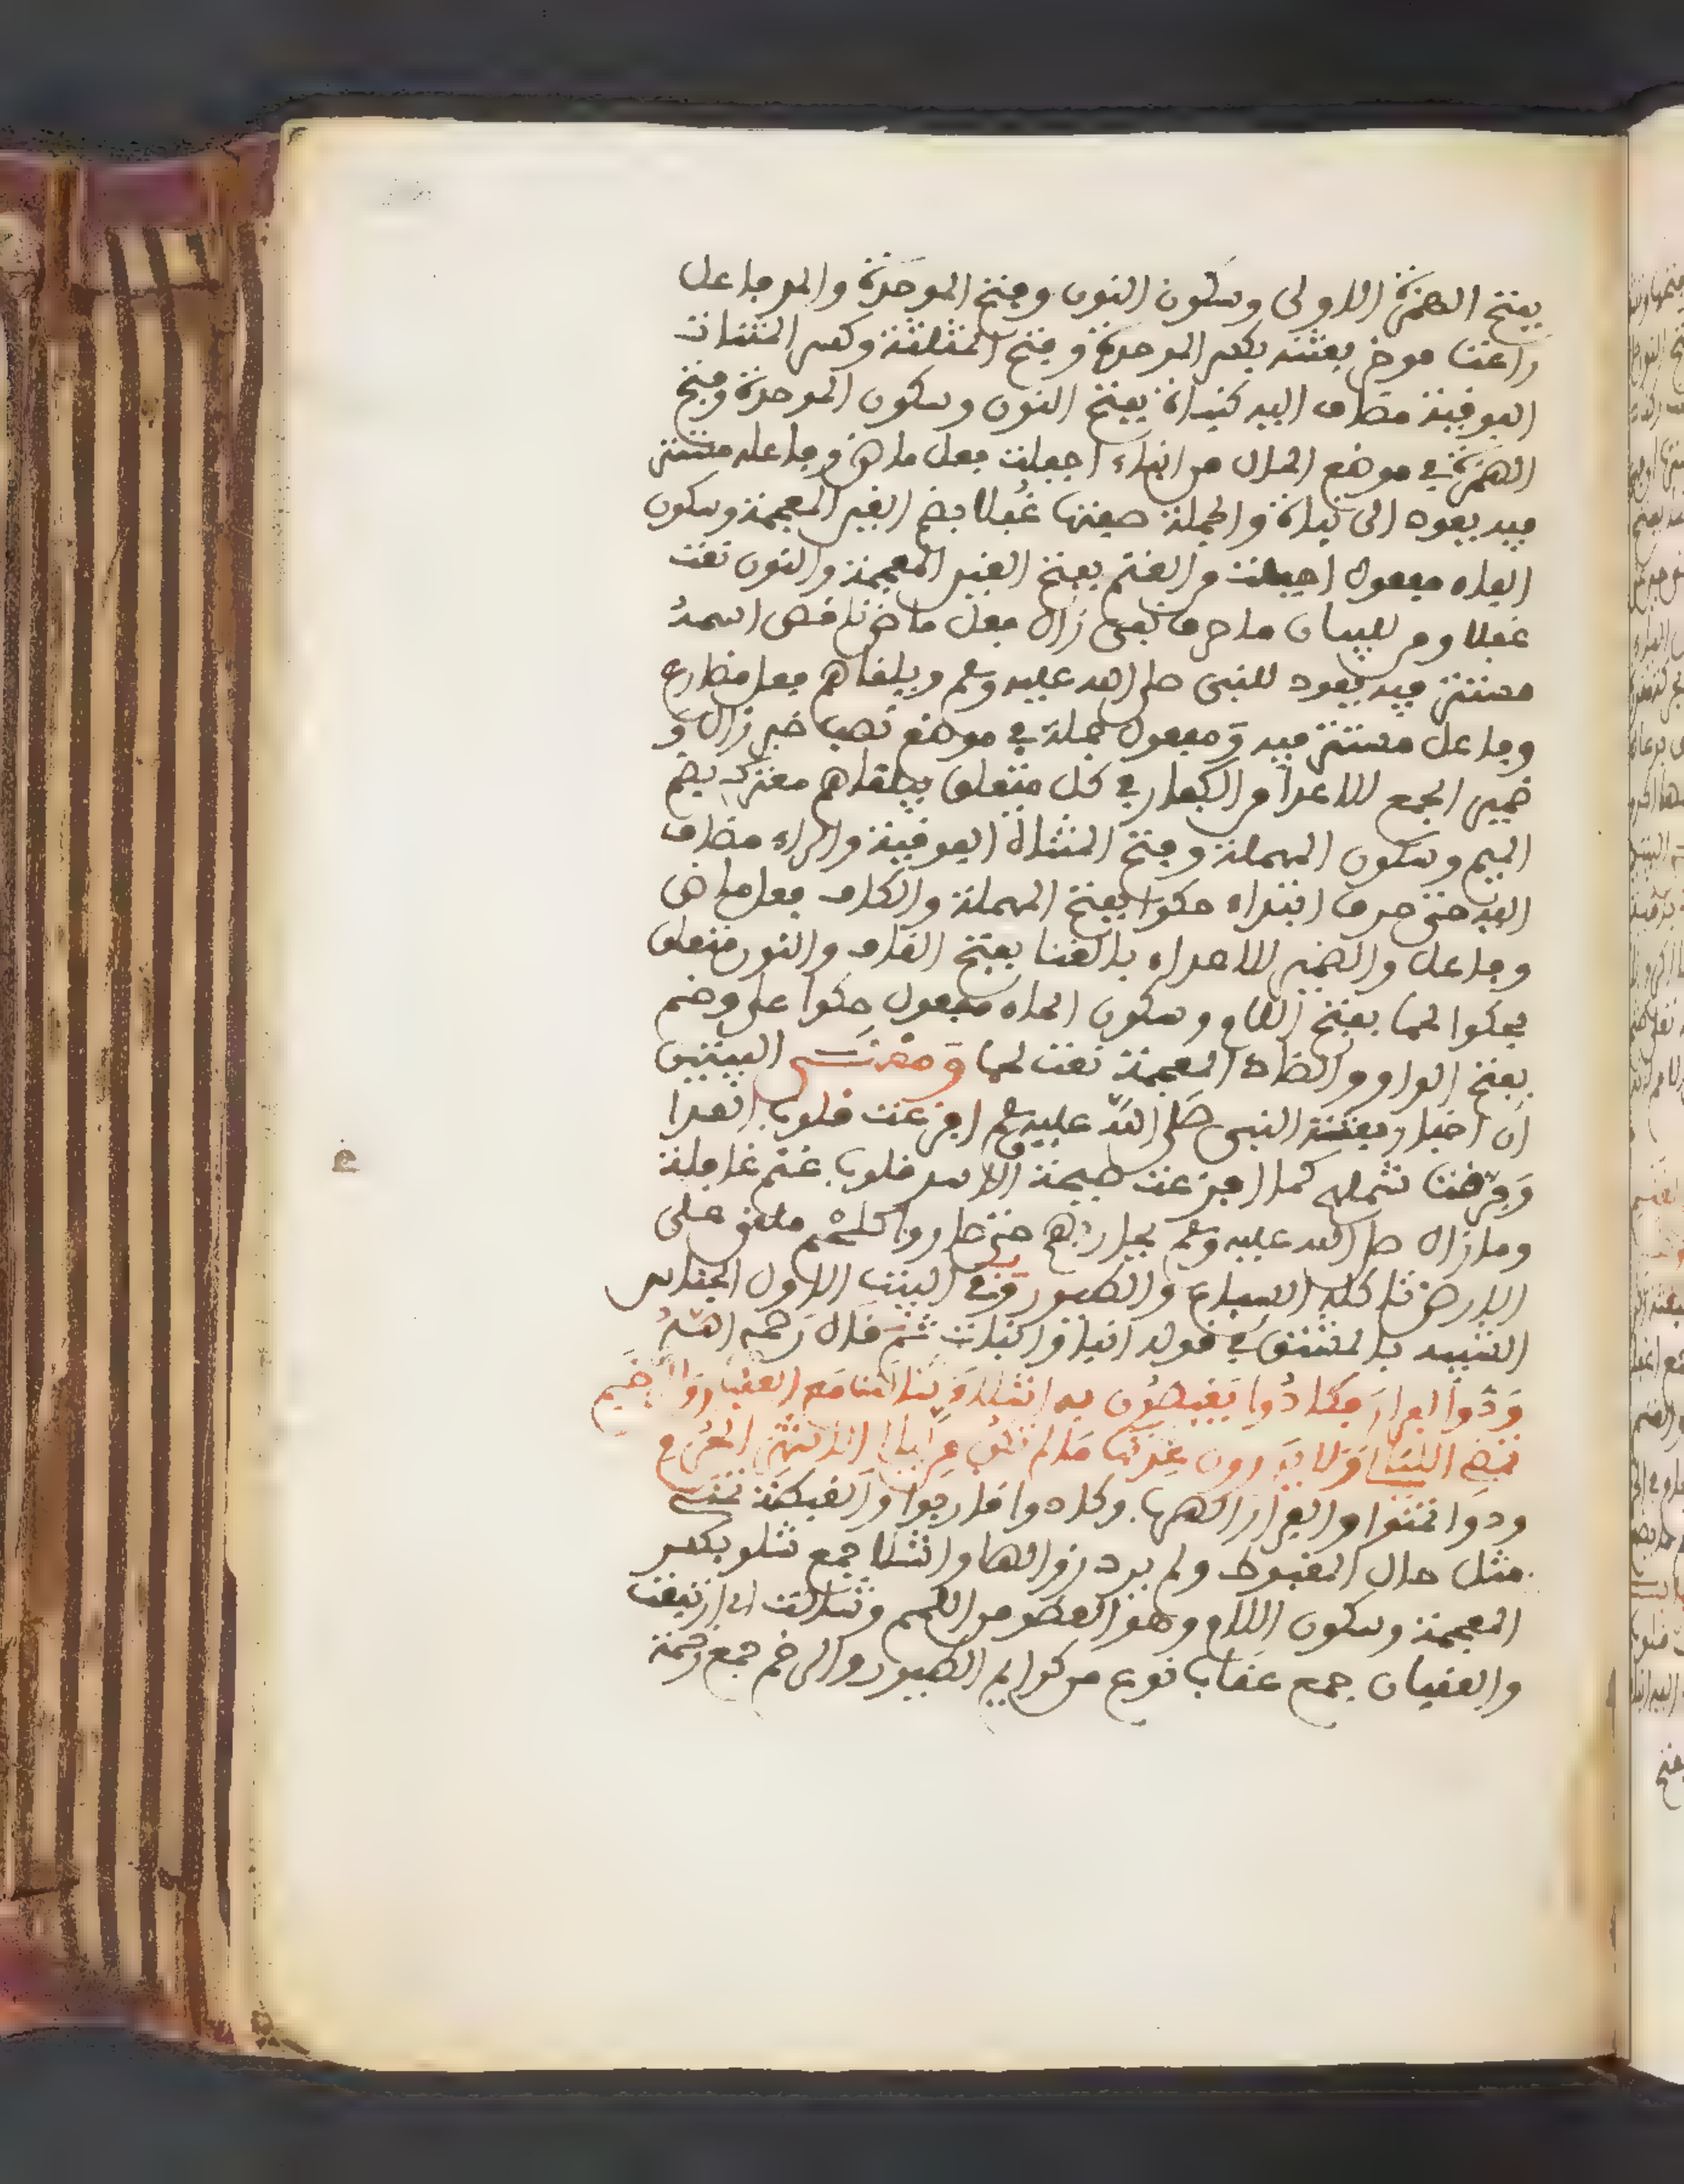 بفتح الهمزة الاولى وسكون النون وفتح الموحدة والمد فاعل
راعت موخر بعثته بكسر الموحدة وفتح المثلثة وكسر المثنات
الفوقية مضاف اليه كنبأة بفتح النون وسكون الموحدة وفتح
الهمزة في موضع الحال من انباء اجفلت فعل ماض وفاعله مستتر
فيه يعود الى نبأة والجملة صفتها غفلا بضم الغين المعجمة وسكون
الفاء مفعول اجفلت من الغنم بفتح الغين المعجمة والنون نعت
غفلا ومن للبيان ما حرف نفي زال فعل ماض ناقص اسمه
مستتر فيه يعود للنبي صلى الله عليه وسلم ويلقاهم فعل مضارع
وفاعل مستتر فيه ومفعول جملة في موضع نصب خبر زال و
ضمير الجمع للاعدا من الكفار في كل متعلق بيلقاهم معترك بضم
الميم وسكون المهملة وفتح المثناة الفوقية والراء مضاف
اليه حتى حرف ابتداء حكوا بفتح المهملة والكاف فعل ماض
وفاعل والضمير للاعداء بالقنا بفتح القاف والنون متعلق
بحكوا لحما بفتح اللام وسكون الحاء مفعول حكوا على وضم
بفتح الواو والضاد المعجمة نعت لحما ومعنى البيتين
ان اخبار بعثة النبي صلى الله عليه وسلم افزعت قلوب العدا
وفرقت شملهم كما افزعت صيحة الاسد قلوب غنم غافلة
وما زال صلى الله عليه وسلم يحاربهم حتى صاروا كلحم ملقى على
الارض تاكله السباع والطيور وفي البيت الاول الجناس
الشبيه بالمشتق في قوله انبا وكنبات ثم قال رحمه الله
ودوا الفرار فكادوا يغبطون به اشلاء شالت مع العقبان والرخم
تمضي الليالي ولا يدرون عدتها ما لم تكن من ليالي الاشهر الحرم
ودوا تمنوا والفرار الهرب وكادوا قاربوا والغبطة تمني
مثل حال المغبوط ولم يرد زوالها واشلا جمع شلو بكسر
المعجمة وسكون اللام وهو العضو من اللحم وشالت اي ارتفعت
والعقبان جمع عقاب نوع من كواسر الطيور والرخم جمع رخمة